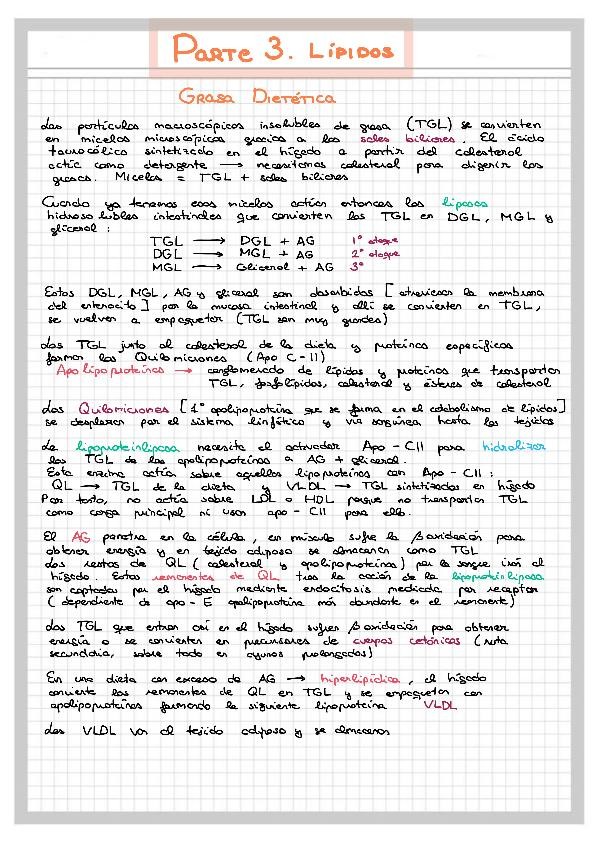 PARTE 3. LÍPIDOS
GRASA DIETÉTICA
Las partículas macroscópicas insolubles de grasa (TGL) se convierten
en micelas microscópicas gracias a las sales biliares. El ácido
taurocólico sintetizado en el hígado a partir del colesterol
actúa como detergente → necesitamos colesterol para digerir las
grasas. Micelas = TGL + sales biliares
Cuando ya tenemos esas micelas actúan entonces las lipasas
hidrosolubles intestinales que convierten las TGL en DGL, MGL y
glicerol :
TGL → DGL + AG 1º ataque
DGL → MGL + AG 2º ataque
MGL → Glicerol + AG 3º
Estos DGL, MGL, AG y glicerol son absorbidos [atraviesan la membrana
del enterocito] por la mucosa intestinal y allí se convierten en TGL,
se vuelven a empaquetar (TGL son muy grandes)
Los TGL junto al colesterol de la dieta y proteínas específicas
forman los Quilomicrones (Apo C-II)
Apolipoproteínas → conglomerado de lípidos y proteínas que transportan
TGL, fosfolípidos, colesterol y ésteres de colesterol
Los Quilomicrones [1º apolipoproteína que se forma en el catabolismo de lípidos]
se desplazan por el sistema linfático y vía sanguínea hasta los tejidos
La lipoproteinlipasa necesita el activador Apo-CII para hidrolizar
los TGL de las apolipoproteínas a AG + glicerol.
Esta enzima actúa sobre aquellas lipoproteínas con Apo-CII :
QL → TGL de la dieta y VLDL → TGL sintetizados en hígado
Por tanto, no actúa sobre LDL o HDL porque no transportan TGL
como carga principal ni usan apo-CII para ello.
El AG penetra en la célula, en músculo sufre la β oxidación para
obtener energía y en tejido adiposo se almacenan como TGL
Los restos de QL (colesterol y apolipoproteínas) por la sangre irán al
hígado. Estos remanentes de QL tras la acción de la lipoproteinlipasa
son captados por el hígado mediante endocitosis mediada por receptor
(dependiente de apo-E apolipoproteína más abundante en el remanente)
Los TGL que entran así en el hígado sufren β oxidación para obtener
energía o se convierten en precursores de cuerpos cetónicos (ruta
secundaria, sobre todo en ayunos prolongados)
En una dieta con exceso de AG → hiperlipídica, el hígado
convierte los remanentes de QL en TGL y se empaquetan con
apolipoproteínas formando la siguiente lipoproteína VLDL
Las VLDL van al tejido adiposo y se almacenan